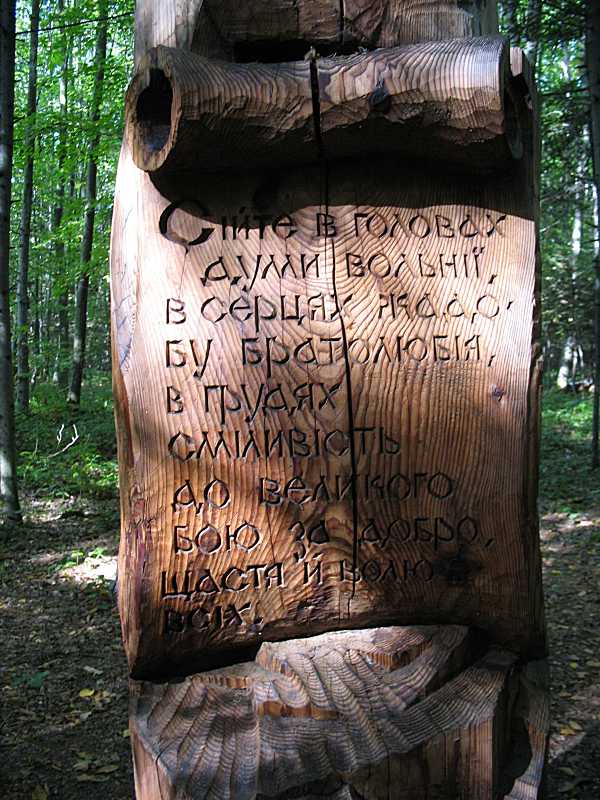 Сійте в головах
думи вольнії,
в серцях жадо-
бу братолюбія,
в грудях
сміливість
до великого
бою за добро,
щастя й волю
всіх.